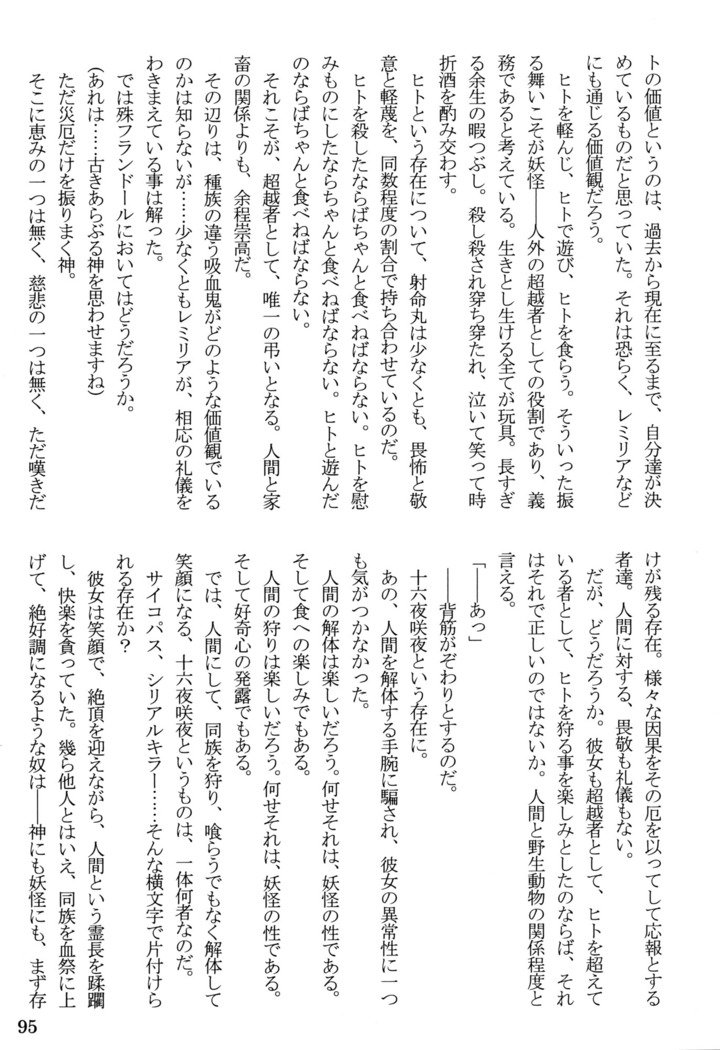 トの価値というのは、過去から現在に至るまで、自分達が決
めているものだと思っていた。それは恐らく、レミリアなど
にも通じる価値観だろう。
ヒトを軽んじ、ヒトで遊び、ヒトを食らう。そういった振
る舞いこそが妖怪――人外の超越者としての役割であり、義
務であると考えている。生きとし生ける全てが玩具。長すぎ
る余生の暇つぶし。殺し殺され穿ち穿たれ、泣いて笑って時
折酒を酌み交わす。
ヒトという存在について、射命丸は少なくとも、畏怖と敬
意と軽蔑を、同数程度の割合で持ち合わせているのだ。
ヒトを殺したならばちゃんと食べねばならない。ヒトを慰
みものにしたならちゃんと食べねばならない。ヒトと遊んだ
のならばちゃんと食べねばならない。
それこそが、超越者として、唯一の弔いとなる。人間と家
畜の関係よりも、余程崇高だ。
その辺りは、種族の違う吸血鬼がどのような価値観でいる
のかは知らないが……少なくともレミリアが、相応の礼儀を
わきまえている事は解った。
では殊フランドールにおいてはどうだろうか。
(あれは……古きあらぶる神を思わせますね)
ただ災厄だけを振りまく神。
そこに恵みの一つは無く、慈悲の一つは無く、ただ嘆きだ
けが残る存在。様々な因果をその厄を以ってして応報とする
者達。人間に対する、畏敬も礼儀もない。
だが、どうだろうか。彼女も超越者として、ヒトを超えて
いる者として、ヒトを狩る事を楽しみとしたのならば、それ
はそれで正しいのではないか。人間と野生動物の関係程度と
言える。
「――あっ」
――背筋がぞわりとするのだ。
十六夜咲夜という存在に。
あの、人間を解体する手腕に騙され、彼女の異常性に一つ
も気がつかなかった。
人間の解体は楽しいだろう。何せそれは、妖怪の性である。
そして食への楽しみでもある。
人間の狩りは楽しいだろう。何せそれは、妖怪の性である。
そして好奇心の発露でもある。
では、人間にして、同族を狩り、喰らうでもなく解体して
笑顔になる、十六夜咲夜というものは、一体何者なのだ。
サイコパス、シリアルキラー……そんな横文字で片付けら
れる存在か?
彼女は笑顔で、絶頂を迎えながら、人間という霊長を蹂躙
し、快楽を貪っていた。幾ら他人とはいえ、同族を血祭に上
げて、絶好調になるような奴は――神にも妖怪にも、まず存
95